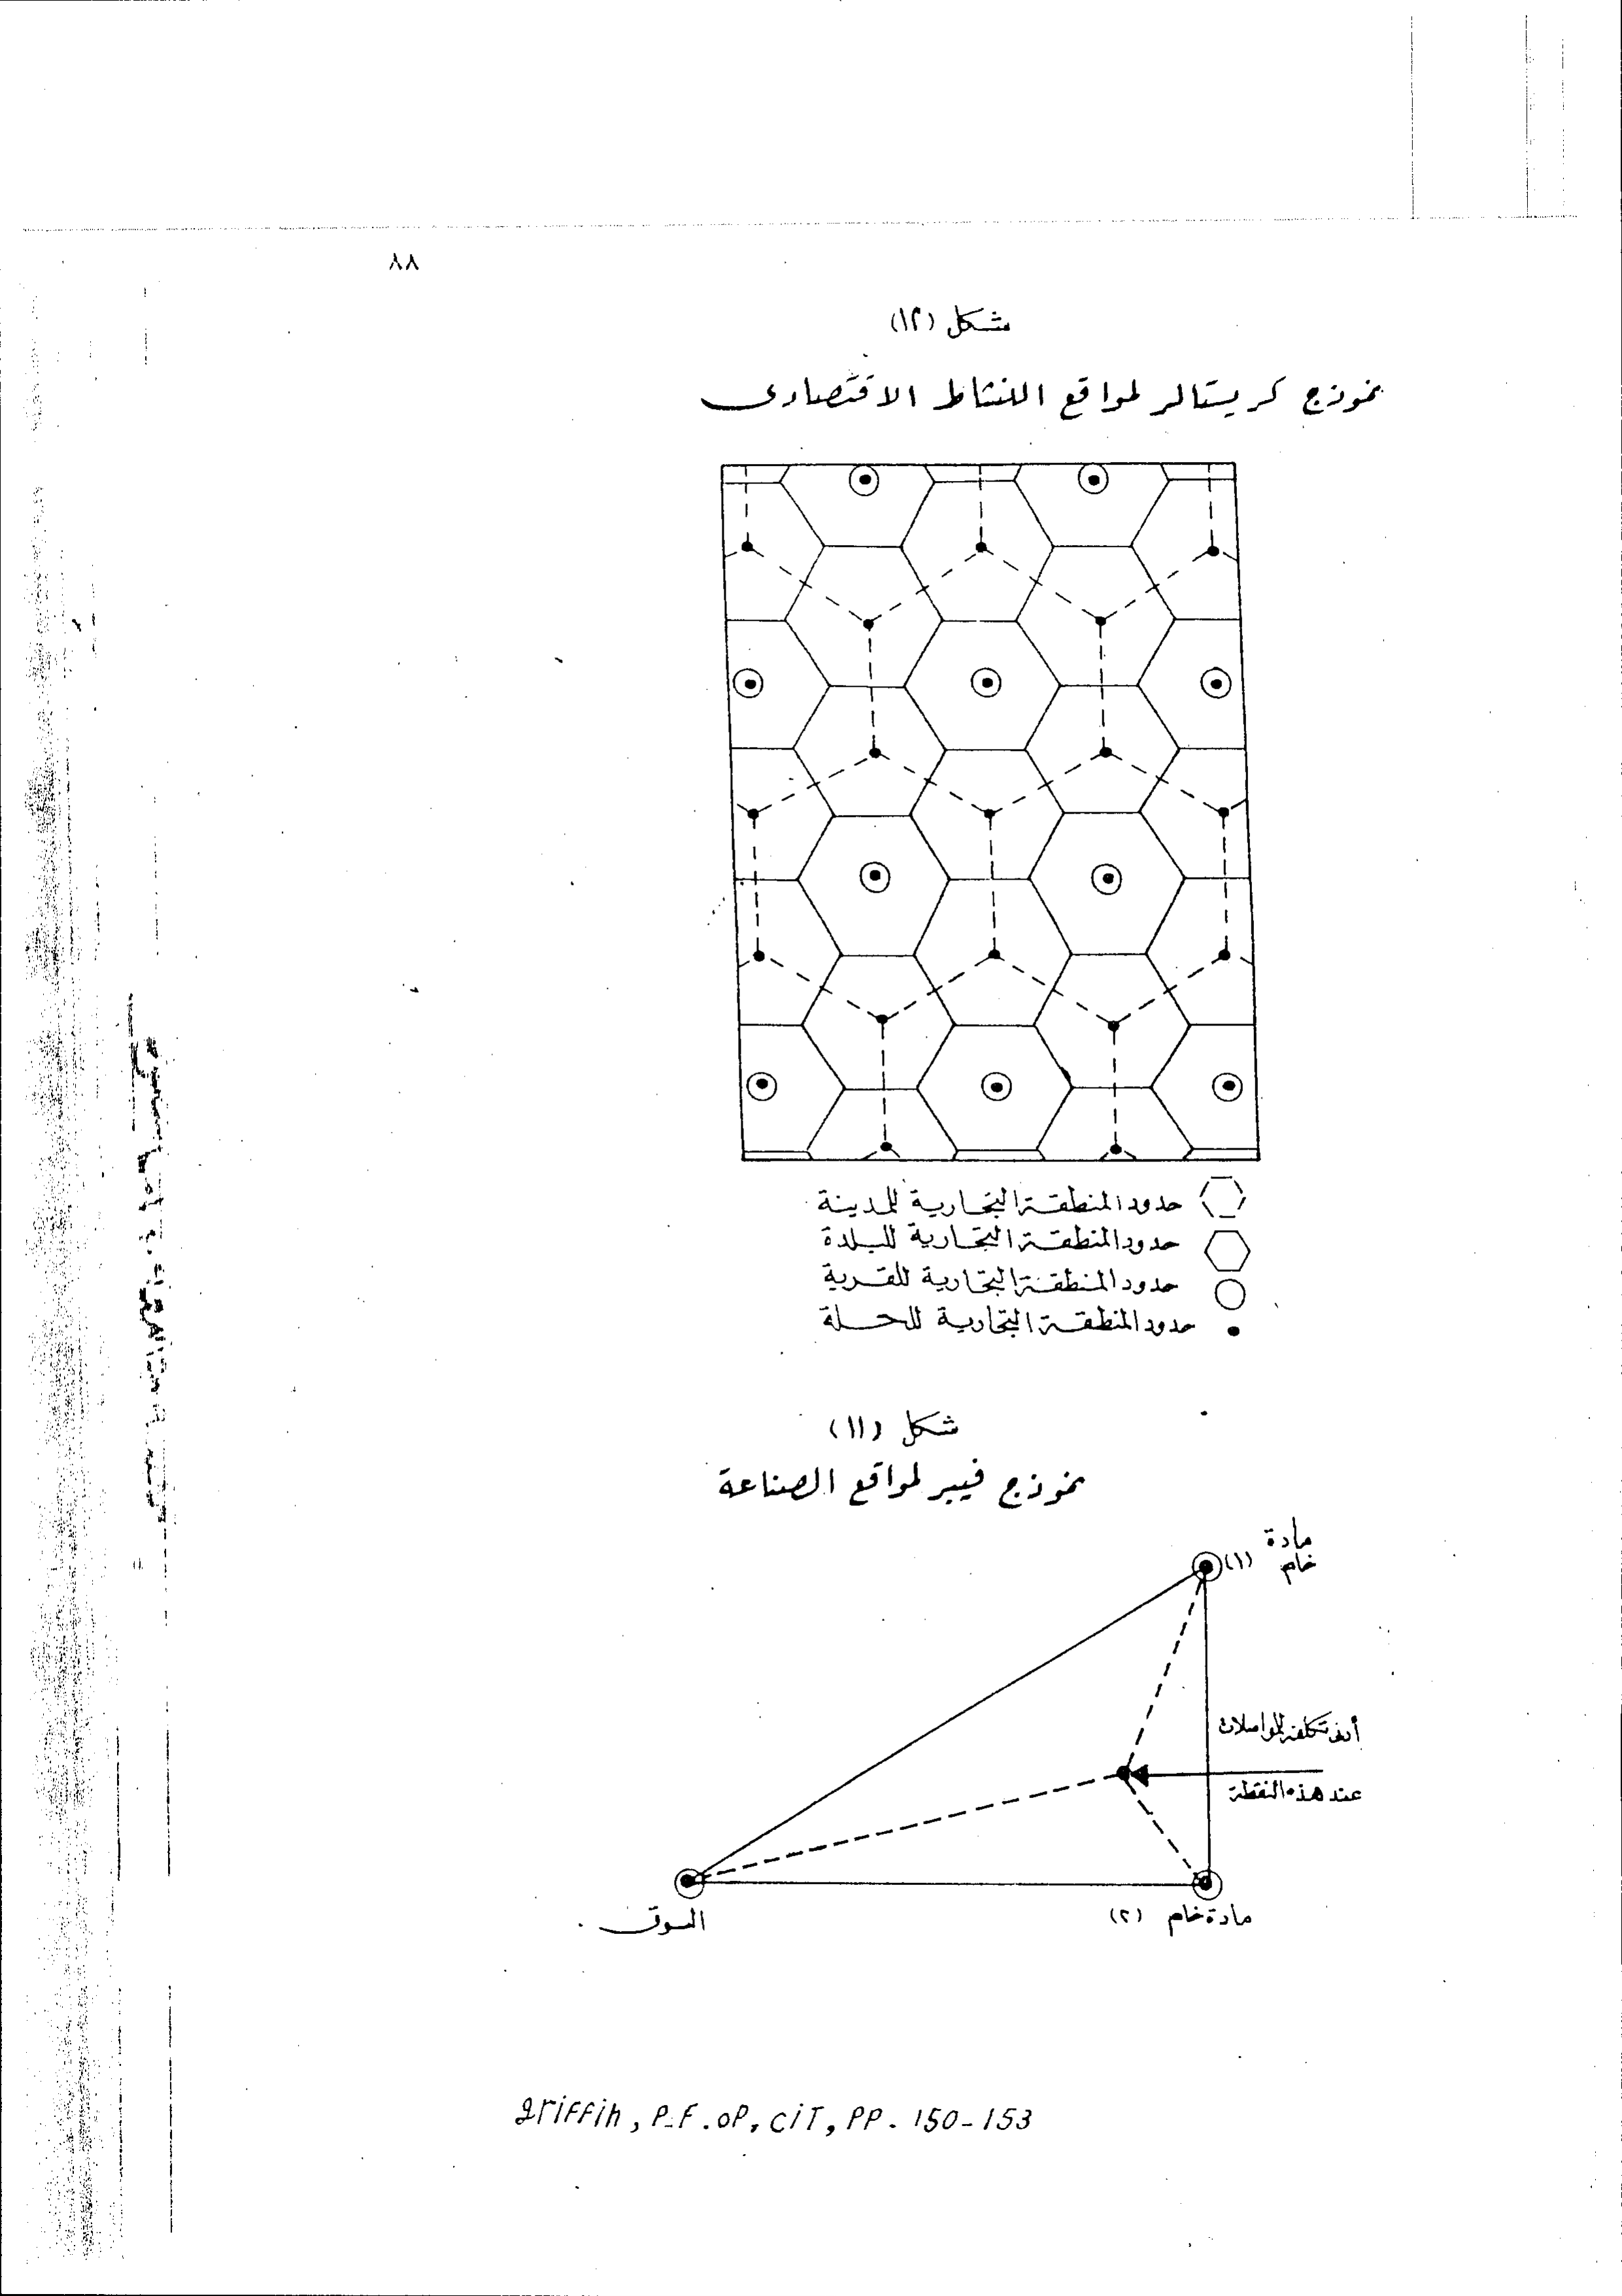 ٨٨
شكل (١٢)
نموذج كريستالر لمواقع اللنشاط الاقتصادى
حدود المنطقة التجارية للمدينة
حدود المنطقة التجارية للبلدة
حدود المنطقة التجارية للقرية
حدود المنطقة التجارية للحلة
شكل (١١)
نموذج فيبر لمواقع الصناعة
مادة
خام (١)
تكلفة للمواصلات
عند هذه النقطة
مادة خام (٢)
السوق
griffih, P.F. oP, ciT, PP. 150-153